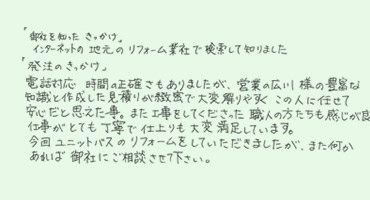 「御社を知ったきっかけ」
インターネットの地元のリフォーム業社で検索して知りました
「発注のきっかけ」
電話対応 時間の正確さもありましたが、営業の広川様の豊富な
知識と作成した見積りが緻密で大変解りやすくこの人に任せて
安心だと思えた事。また工事をしてくださった職人の方たちも感じが良
仕事がとても丁寧で仕上りも大変満足しています。
今回ユニットバスのリフォームをしていただきましたが、また何か
あれば御社にご相談させて下さい。